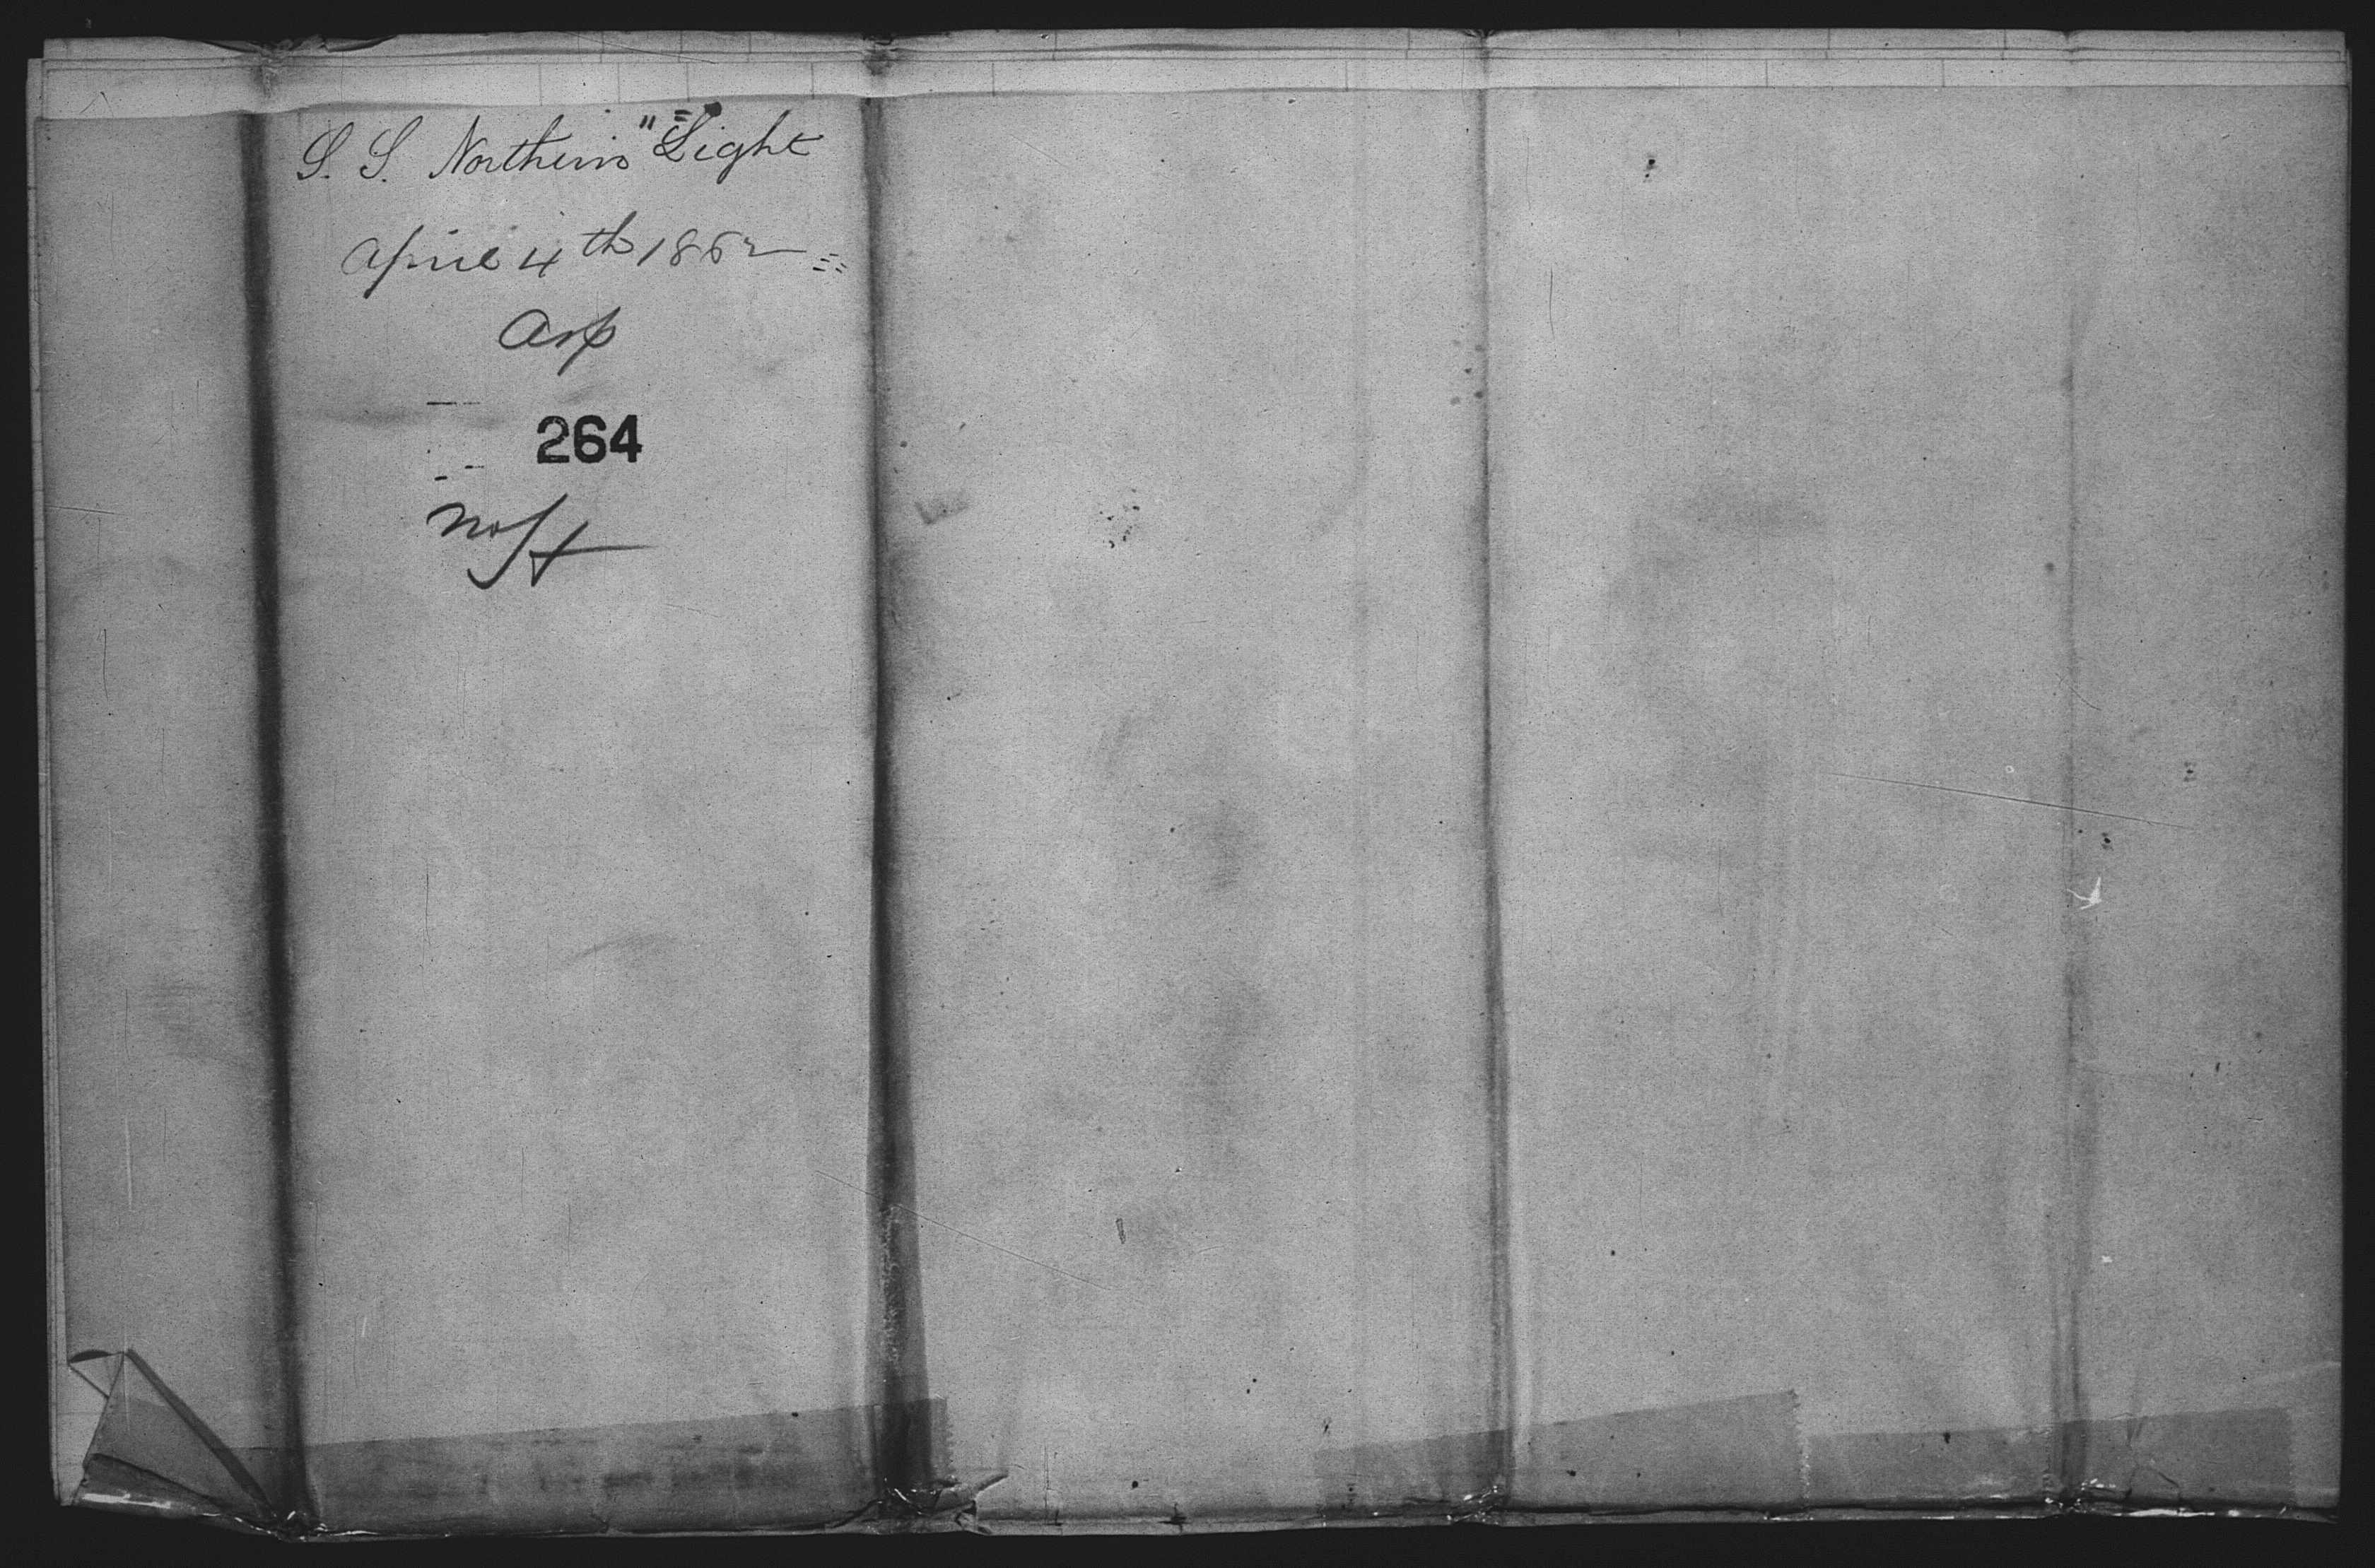 S. S. Northern "Light
April 4th 1862
Asp
264